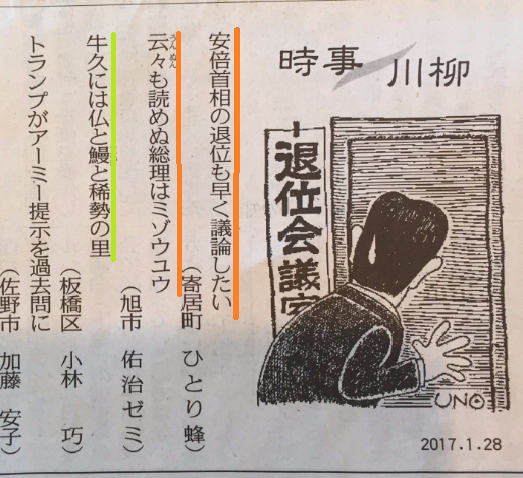 時事川柳
退位会議室
UNO
2017.1.28
安倍首相の退位も早く議論したい
(寄居町 ひとり蜂)
云々も読めぬ総理はミゾウユウ
(旭市 佑治ゼミ)
牛久には仏と鰻と稀勢の里
(板橋区 小林 巧)
トランプがアーミー提示を過去問に
(佐野市 加藤 安子)